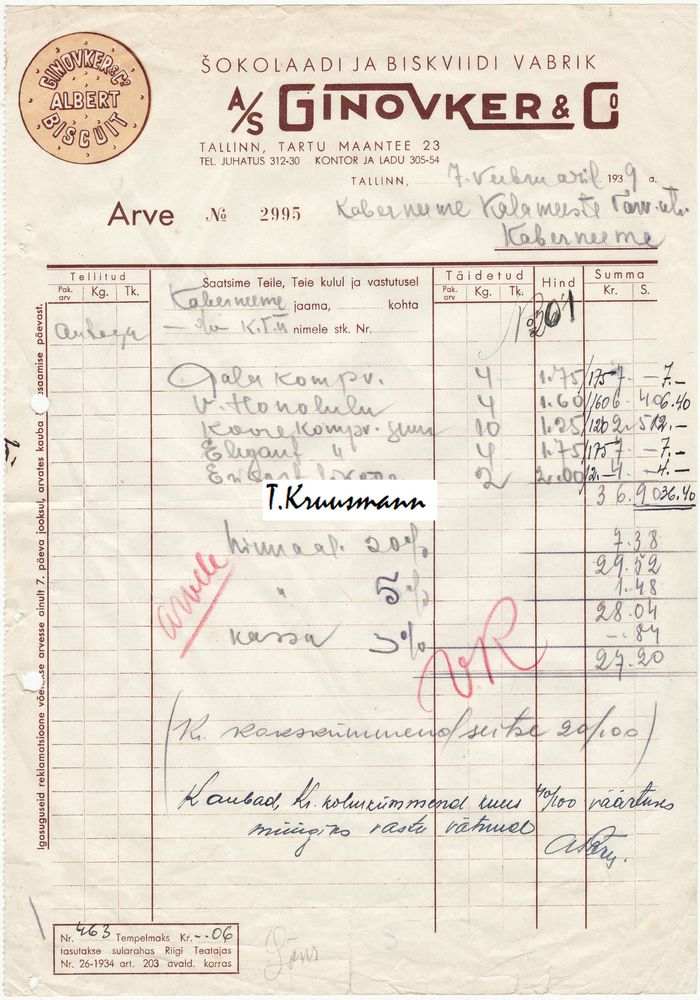 GINOVKER & Co
ALBERT
BISCUIT
ŠOKOLAADI JA BISKVIIDI VABRIK
A/S GINOVKER & Co
TALLINN, TARTU MAANTEE 23
TEL. JUHATUS 312-30 KONTOR JA LADU 305-54
TALLINN, 7. veebruaril 1939 a.
Arve № 2995
Kaberneeme Kalameeste
Kaberneeme
Tellitud Täidetud Hind Summa
Pak. arv Kg. Tk. Saatsime Teile, Teie kulul ja vastutusel Pak. arv Kg. Tk. Kr. S.
Kaberneeme jaama, kohta
autoga K.T.Ü nimele stk. Nr.
№ 201
Gala kompv. 4 1.75 /175 7.- -7.-
V. Honolulu 4 1.60 /160 6.40 6.40
Koorekompv. 10 1.25 /120 2.5 12.-
Elegant " 4 1.75 /175 7.- -7.-
2 2.00 /2.- 4.- -4.-
36.90 36.40
T.Kruusmann
hinnaal. 20% 7.38
29.52
arvelle
" 5% 1.48
28.04
kassa 3% -.84
27.20
V.R
(Kr. kakskümmend seitse 20/100)
Kaubad, Kr. kolmkümmend kuus 40/100 väärtuses
müügiks vastu võtnud
Igasuguseid reklamatsioone võetakse arvesse ainult 7. päeva jooksul, arvates kauba saamise päevast.
Nr. 463 Tempelmaks Kr. -.06
tasutakse sularahas Riigi Teatajas
Nr. 26-1934 art. 203 avald. korras